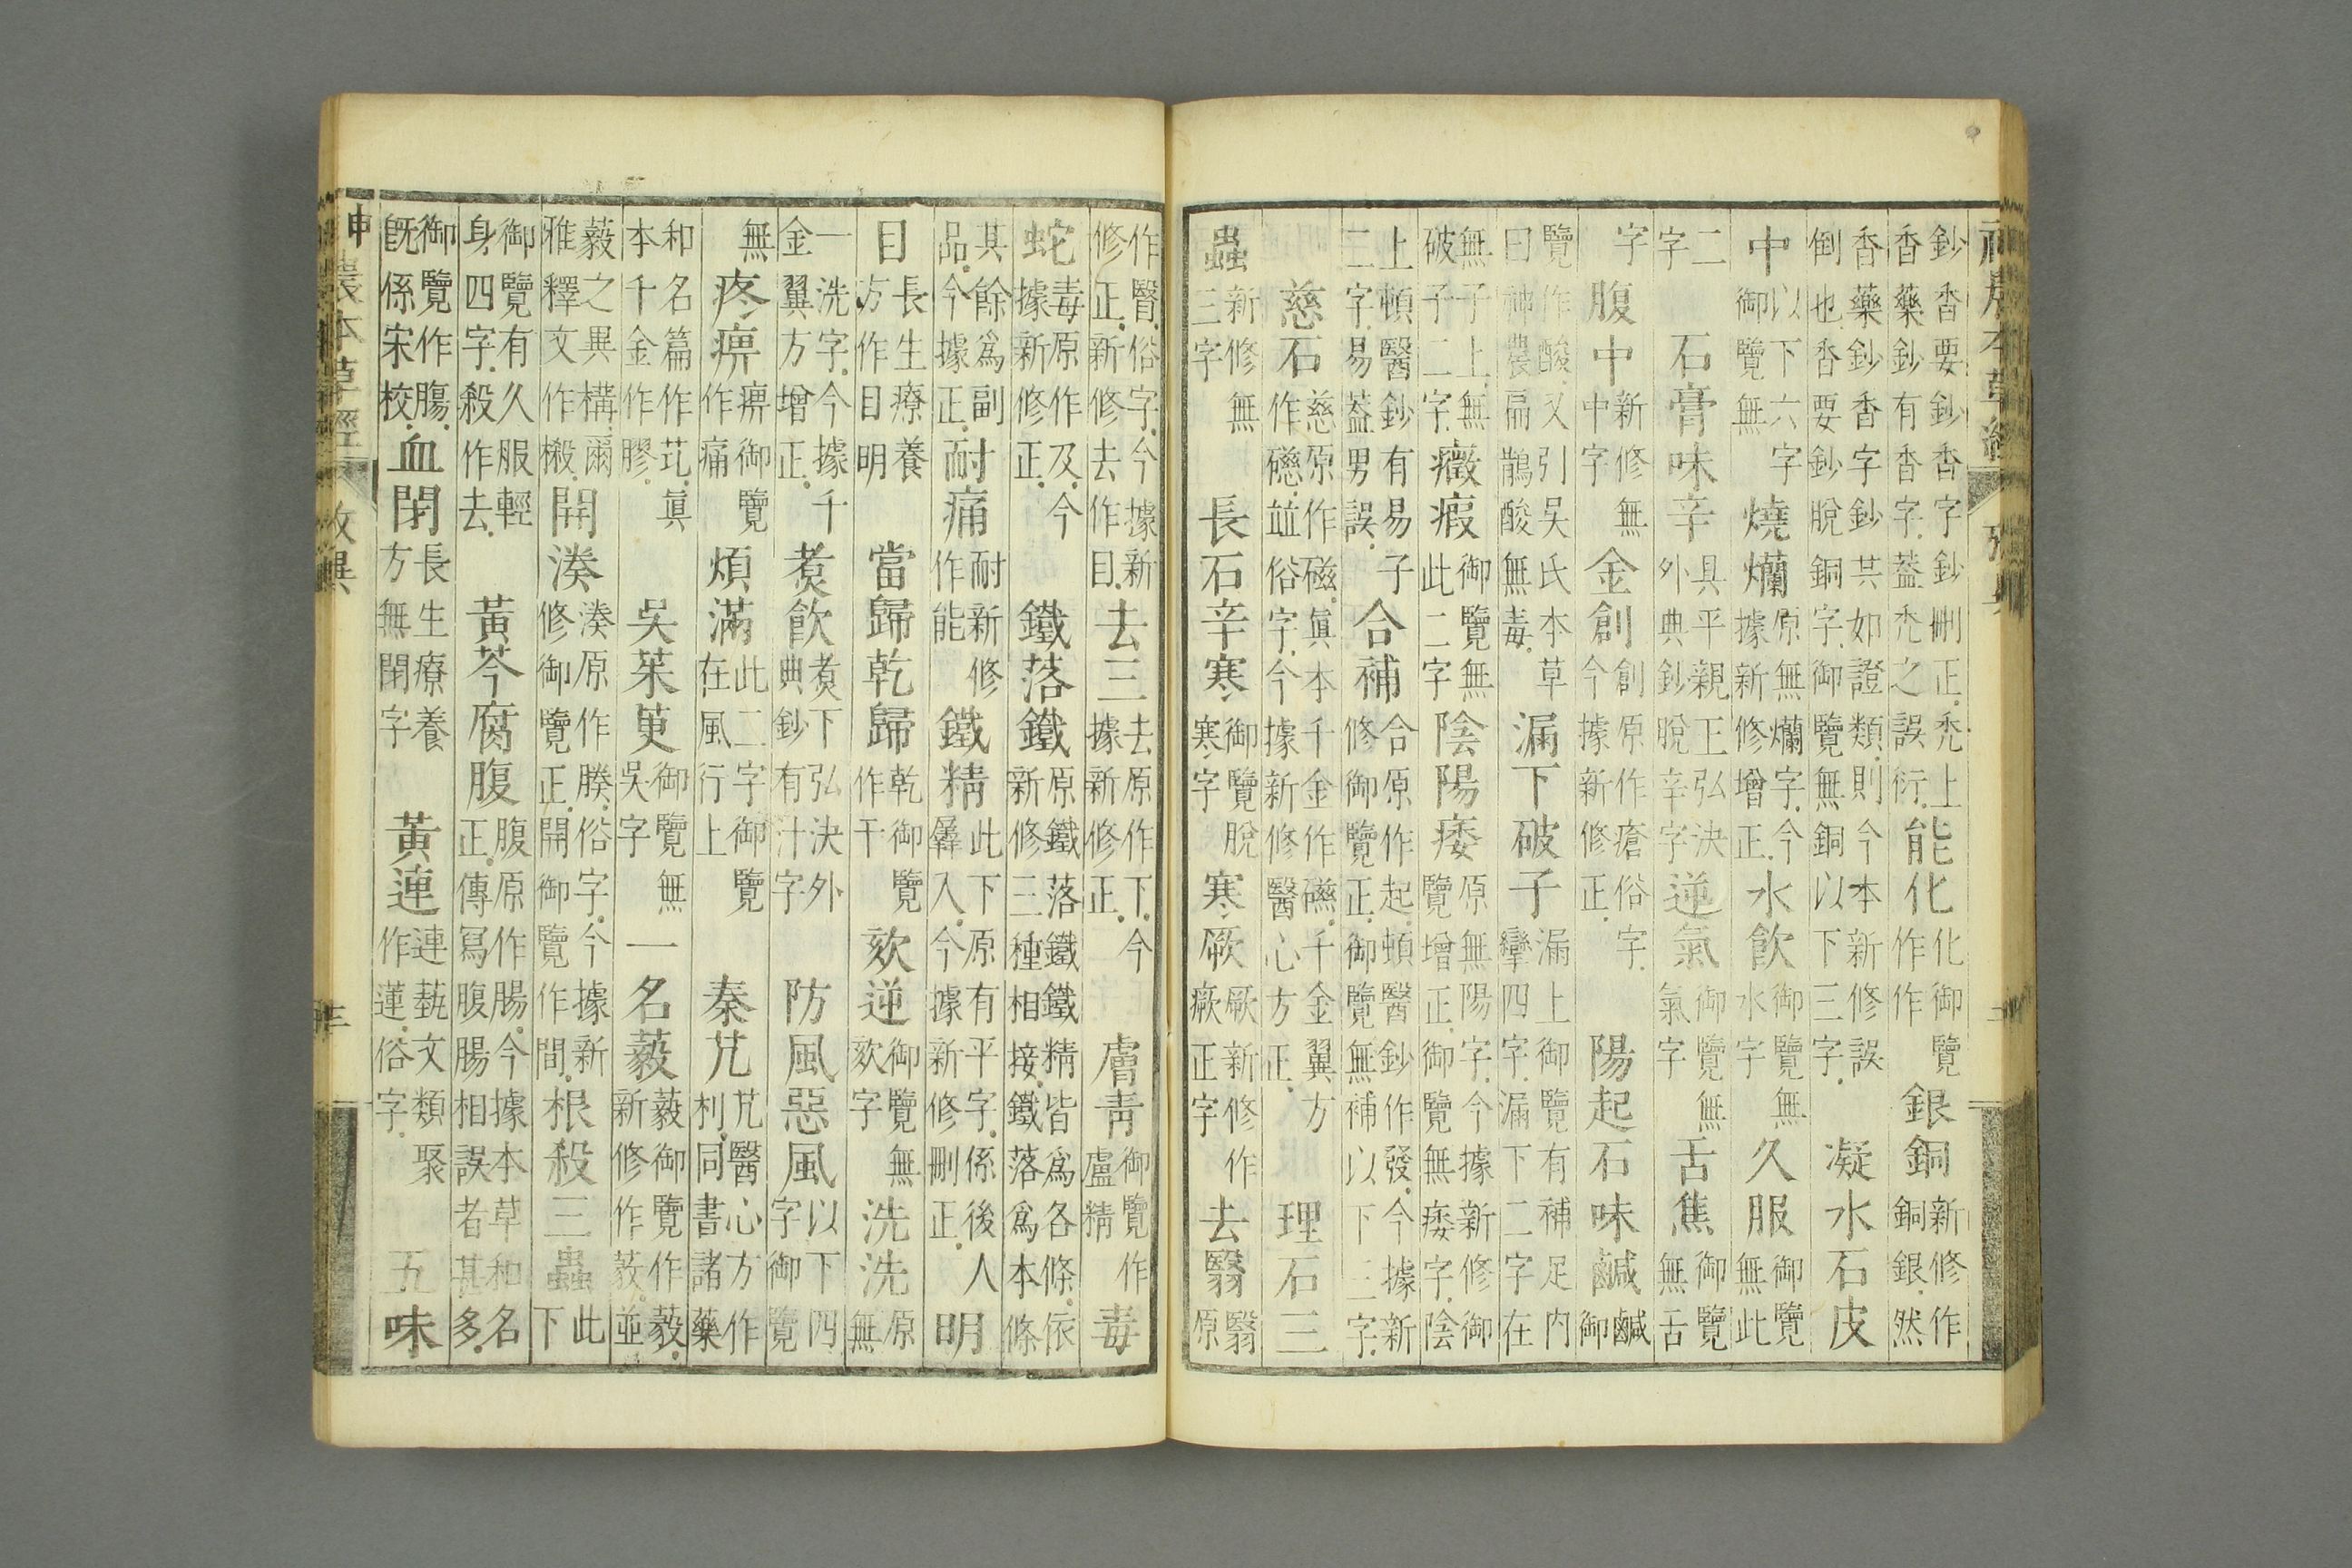 鈔香要鈔香字鈔刪正禿上香藥鈔有香字蓋禿之誤衍能化化御覽作作銀銅新修作銅銀然
香藥鈔香字鈔其如證類則今本新修誤倒也香要鈔脫銅字御覽無銅以下三字凝水石皮
中以下六字御覽無燒爛原無爛字今據新修增正水飲御覽無水字久服御覽無此
二字石膏味辛具平親王弘決外典鈔脫辛字逆氣御覽無氣字舌焦御覽無舌
字腹中新修無中字金創創原作瘡俗字今據新修正陽起石味鹹鹹御
覽作酸又引吳氏本草曰神農扁鵲酸無毒漏下破子漏上御覽有補足內攣四字漏下二字在
無子上無破子二字癥瘕御覽無此二字陰陽痿原無陽字今據新修御覽增正御覽無痿字陰
上頓醫鈔有易子二字易蓋男誤合補合原作起頓醫鈔作發今據新修御覽正御覽無補以下三字
慈石慈原作磁眞本千金作磁千金翼方作礠竝俗字今據新修醫心方正理石三
蟲新修無三字長石辛寒御覽脫寒字寒厥厥新修作瘚正字去翳翳原
作醫俗字今據新修正新修去作目去三去原作下今據新修正膚青御覽作盧精毒
蛇毒原作及今據新修正鐵落鐵原鐵落鐵鐵精皆爲各條依新修三種相接鐵落爲本條
其餘爲副品今據正耐痛耐新修作能鐵精此下原有平字係後人羼入今據新修刪正明
目長生療養方作目明當歸乾歸乾御覽作干欬逆御覽無欬字洗洗原無
一洗字今據千金翼方增正煑飮煑下弘決外典鈔有汁字防風惡風以下四字御覽
無疼痹痹御覽作痛煩滿此二字御覽在風行上秦艽艽醫心方作利同書諸藥
和名篇作艽眞本千金作膠吳茱萸御覽無吳字一名藙藙御覽作藙新修作蔱竝
藙之異構爾雅釋文作樧開湊湊原作腠俗字今據新修御覽正開御覽作間根殺三蟲此下
御覽有久服輕身四字殺作去黃芩腐腹腹原作腸今據本草和名正傳寫腹腸相誤者甚多
御覽作膓既係宋校血閉長生療養方無閉字黃連連藝文類聚作蓮俗字五味
神農本草經 攷異